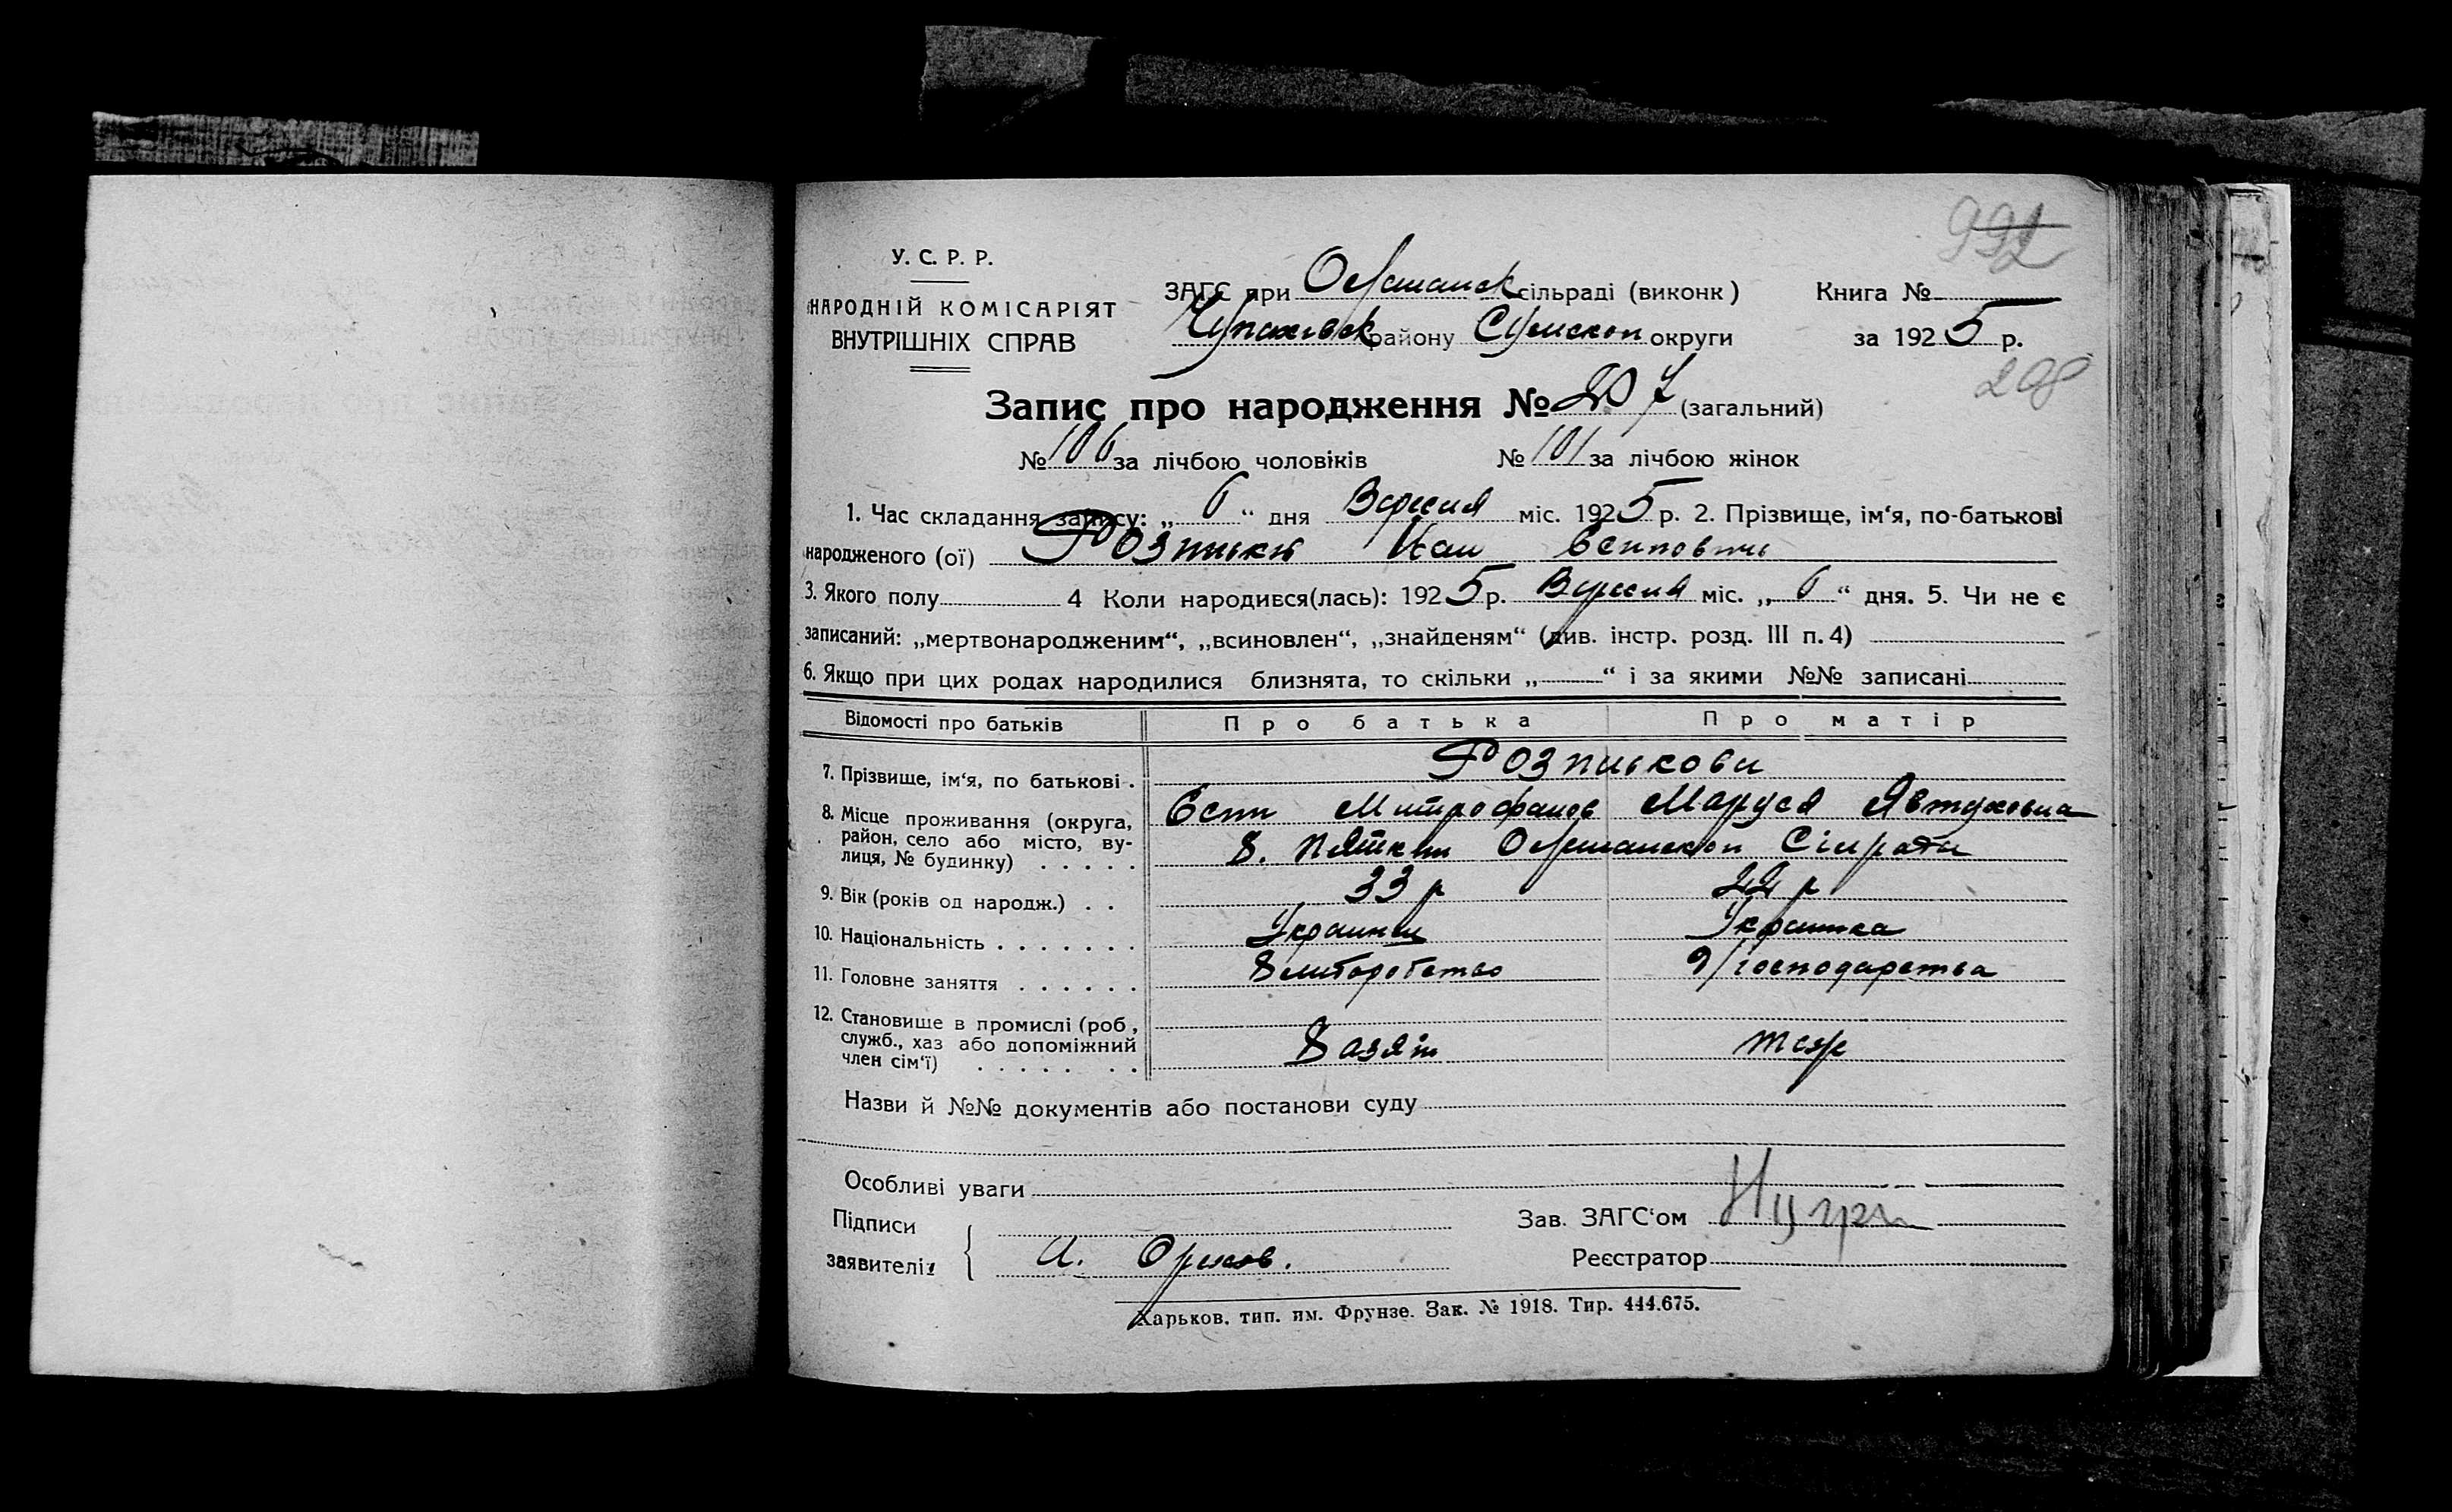 992
У. С. Р. Р.
НАРОДНІЙ КОМІСАРІЯТ
ВНУТРІШНІХ СПРАВ
ЗАГС при сільраді (виконк) Книга №
району Сумской округи за 1925 р.
208
Запис про народження № 207 (загальний)
№ 106 за лічбою чоловіків № 101 за лічбою жінок
1. Час складання запису: „ 6 “ дня Вересня міс. 1925 р. 2. Прізвище, ім‘я, по-батькові
народженого (ої) Єсипович
3. Якого полу 4 Коли народився(лась): 1925 р. Вересня міс. „ 6 “ дня. 5. Чи не є
записаний: „мертвонародженим“, „всиновлен“, „знайденям“ (див. інстр. розд. III п. 4)
6. Якщо при цих родах народилися близнята, то скільки „ “ і за якими №№ записані
Відомості про батьків Про батька Про матір
7. Прізвище, ім‘я, по батькові .
8. Місце проживання (округа, Митрофанов Маруся Явтуховна
район, село або місто, ву-
лиця, № будинку) . . . . . Сілради
9. Вік (років од народж.) . . 33 р
10. Національність . . . . . . . Украинка
11. Головне заняття . . . . . . Д/господарства
12. Становище в промислі (роб,
служб., хаз або допоміжний
член сім‘ї) . . . . . . . Хазяін
Назви й №№ документів або постанови суду
Особливі уваги
Підписи Зав. ЗАГС‘ом
заявителів А. Реєстратор
Харьков, тип. им. Фрунзе. Зак. № 1918. Тир. 444.675.